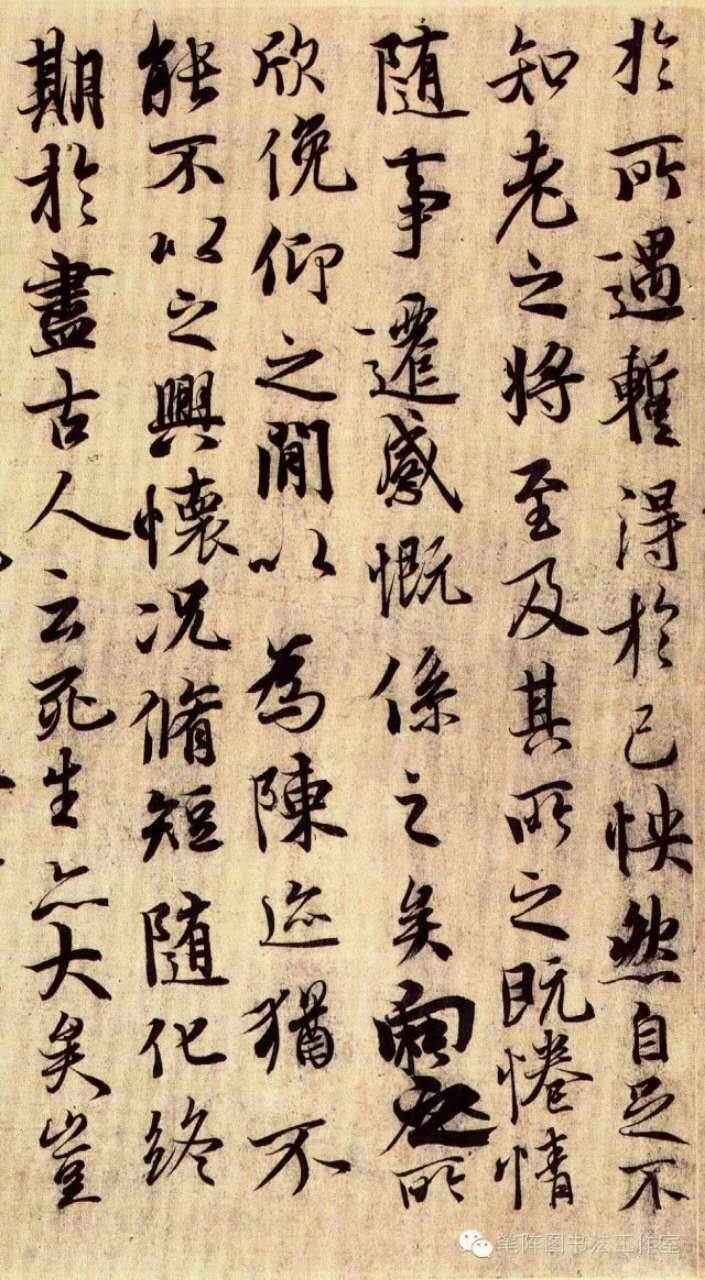 於所遇暫得於己怏然自足不
知老之將至及其所之既惓情
隨事遷感慨係之矣向之所
欣俛仰之閒以為陳迹猶不
能不以之興懷況脩短隨化終
期於盡古人云死生亦大矣豈
笔阵图书法工作室